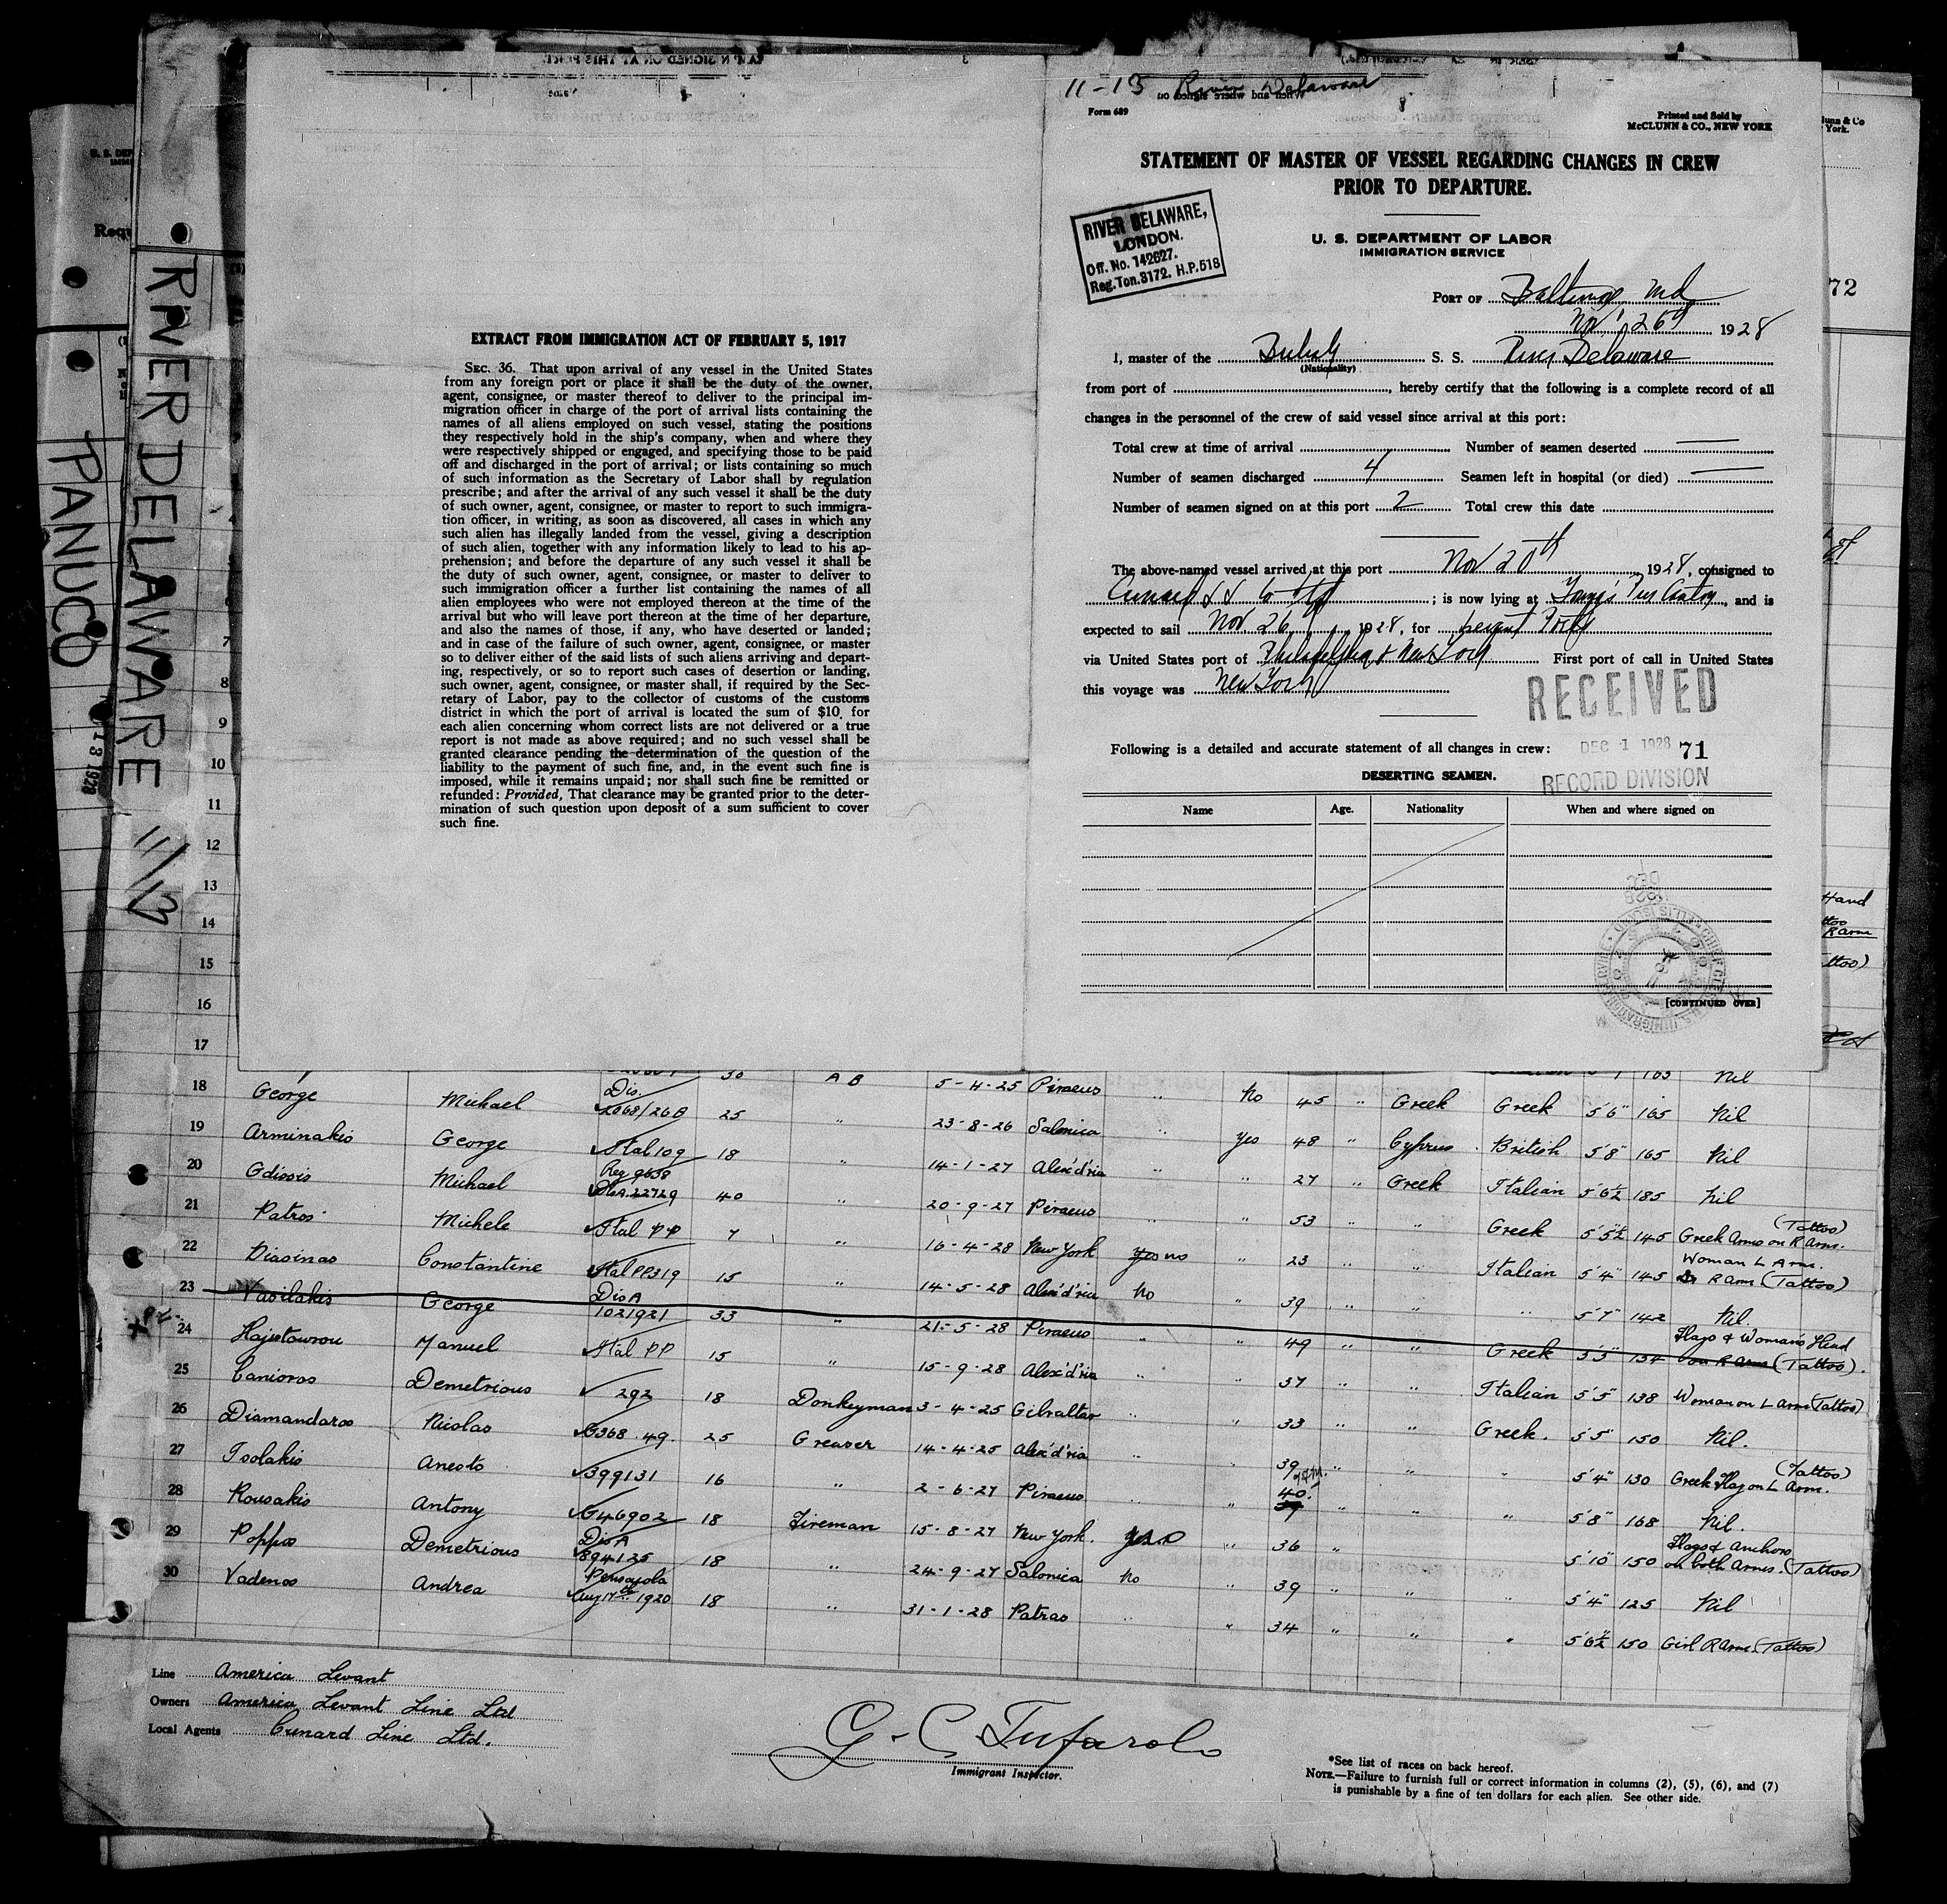 11-13 River Delaware
Form 689
Printed and Sold by
McCLUNN & CO., NEW YORK
STATEMENT OF MASTER OF VESSEL REGARDING CHANGES IN CREW
PRIOR TO DEPARTURE.
RIVER DELAWARE,
LONDON.
Off. No. 142627.
Reg. Ton. 3172. H.P. 518
U. S. DEPARTMENT OF LABOR
IMMIGRATION SERVICE
PORT OF Baltimore Md
Nov 26th 1928
I, master of the British S. S. River Delaware
(Nationality)
from port of , hereby certify that the following is a complete record of all
changes in the personnel of the crew of said vessel since arrival at this port:
Total crew at time of arrival Number of seamen deserted
Number of seamen discharged 4 Seamen left in hospital (or died)
Number of seamen signed on at this port 2 Total crew this date
The above-named vessel arrived at this port Nov 20th 1928, consigned to
Cunard SS Co Ltd ; is now lying at Pier Canton, and is
expected to sail Nov 26 1928, for Ports
via United States port of Philadelphia & New York First port of call in United States
this voyage was New York
RECEIVED
Following is a detailed and accurate statement of all changes in crew: DEC -1 1928 71
DESERTING SEAMEN. RECORD DIVISION
Name Age. Nationality When and where signed on
[CONTINUED OVER]
EXTRACT FROM IMMIGRATION ACT OF FEBRUARY 5, 1917
SEC. 36. That upon arrival of any vessel in the United States
from any foreign port or place it shall be the duty of the owner,
agent, consignee, or master thereof to deliver to the principal im-
migration officer in charge of the port of arrival lists containing the
names of all aliens employed on such vessel, stating the positions
they respectively hold in the ship's company, when and where they
were respectively shipped or engaged, and specifying those to be paid
off and discharged in the port of arrival; or lists containing so much
of such information as the Secretary of Labor shall by regulation
prescribe; and after the arrival of any such vessel it shall be the duty
of such owner, agent, consignee, or master to report to such immigra-
tion officer, in writing, as soon as discovered, all cases in which any
such alien has illegally landed from the vessel, giving a description
of such alien, together with any information likely to lead to his ap-
prehension; and before the departure of any such vessel it shall be
the duty of such owner, agent, consignee, or master to deliver to
such immigration officer a further list containing the names of all
alien employees who were not employed thereon at the time of the
arrival but who will leave port thereon at the time of her departure,
and also the names of those, if any, who have deserted or landed;
and in case of the failure of such owner, agent, consignee, or master
so to deliver either of the said lists of such aliens arriving and depart-
ing, respectively, or so to report such cases of desertion or landing,
such owner, agent, consignee, or master shall, if required by the Sec-
retary of Labor, pay to the collector of customs of the customs
district in which the port of arrival is located the sum of $10 for
each alien concerning whom correct lists are not delivered or a true
report is not made as above required; and no such vessel shall be
granted clearance pending the determination of the question of the
liability to the payment of such fine, and, in the event such fine is
imposed, while it remains unpaid; nor shall such fine be remitted or
refunded: Provided, That clearance may be granted prior to the deter-
mination of such question upon deposit of a sum sufficient to cover
such fine.
RIVER DELAWARE 11/13
PANUCO
7
8
9
10
11
12
13
14
15
16
17
30 AB 5-4-25 Piraeus
18 George Michael Dis. 2068/26B 25 " 23-8-26 Salonica " No 45 " Greek Greek 5'6" 165 Nil
19 Arminakis George Ital 109 18 " 14-1-27 Alex'd'ria " Yes 48 " Cyprus British 5'8" 165 Nil
20 Gdissis Michael Reg 9638 DisA.22729 40 " 20-9-27 Piraeus " " 27 " Greek Italian 5'6½ 185 Nil
21 Patros Michele Ital PP 7 " 16-4-28 New York yes no " 53 " " Greek 5'5½ 145 Greek Arms on R Arm. (Tattoo)
22 Diasinas Constantine Ital PP319 15 " 14-5-28 Alex'd'ria No " 23 " " Italian 5'4" 145 Woman L Arm. R Arm (Tattoo)
23 Vasilakis George DisA 1021921 33 " 21-5-28 Piraeus " " 39 " " " 5'7" 142 Nil.
24 Hajistavrou Manuel Ital PP 15 " 15-9-28 Alex'd'ria " " 49 " " Greek 5'5" 134 Flags & Womans Head on R Arm (Tattoo).
25 Canioros Demetrious 292 18 Donkeyman 3-4-25 Gibraltar " " 37 " " Italian 5'5" 138 Woman on L Arm (Tattoo)
26 Diamandaros Nicolas G368.49. 25 Greaser 14-4-25 Alex'd'ria " " 33 " " Greek. 5'5" 150 Nil.
27 Tsolakis Anesto 399131 16 " 2-6-27 Piraeus " " 39 " " " 5'4" 130 Greek Flag on L Arm. (Tattoo)
28 Rousakis Antony G46902 18 Fireman 15-8-27 New York. " 40. " " " 5'8" 168 Nil.
29 Poppas Demetrious DisA 894125 18 " 24-9-27 Salonica No " 36 " 5'10" 150 Flags & Anchors on both Arms. (Tattoo)
30 Vadenos Andrea Pensacola Aug 17th 1920 18 " 31-1-28 Patras " 39 " " 5'4" 125 Nil
" 34 " " " 5'6½" 150 Girl R Arm. (Tattoo)
Line America Levant
Owners America Levant Line Ltd
Local Agents Cunard Line Ltd.
G. C. Tufarolo
Immigrant Inspector.
*See list of races on back hereof.
NOTE.—Failure to furnish full or correct information in columns (2), (5), (6), and (7)
is punishable by a fine of ten dollars for each alien. See other side.